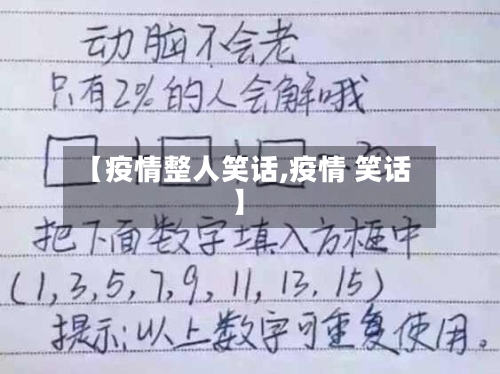 动脑不会老
只有2%的人会解哦
【疫情整人笑话,疫情 笑话
】
把下面数字填入方框中
(1,3,5,7,9,11,13,15)
提示:以上数字可重复使用。